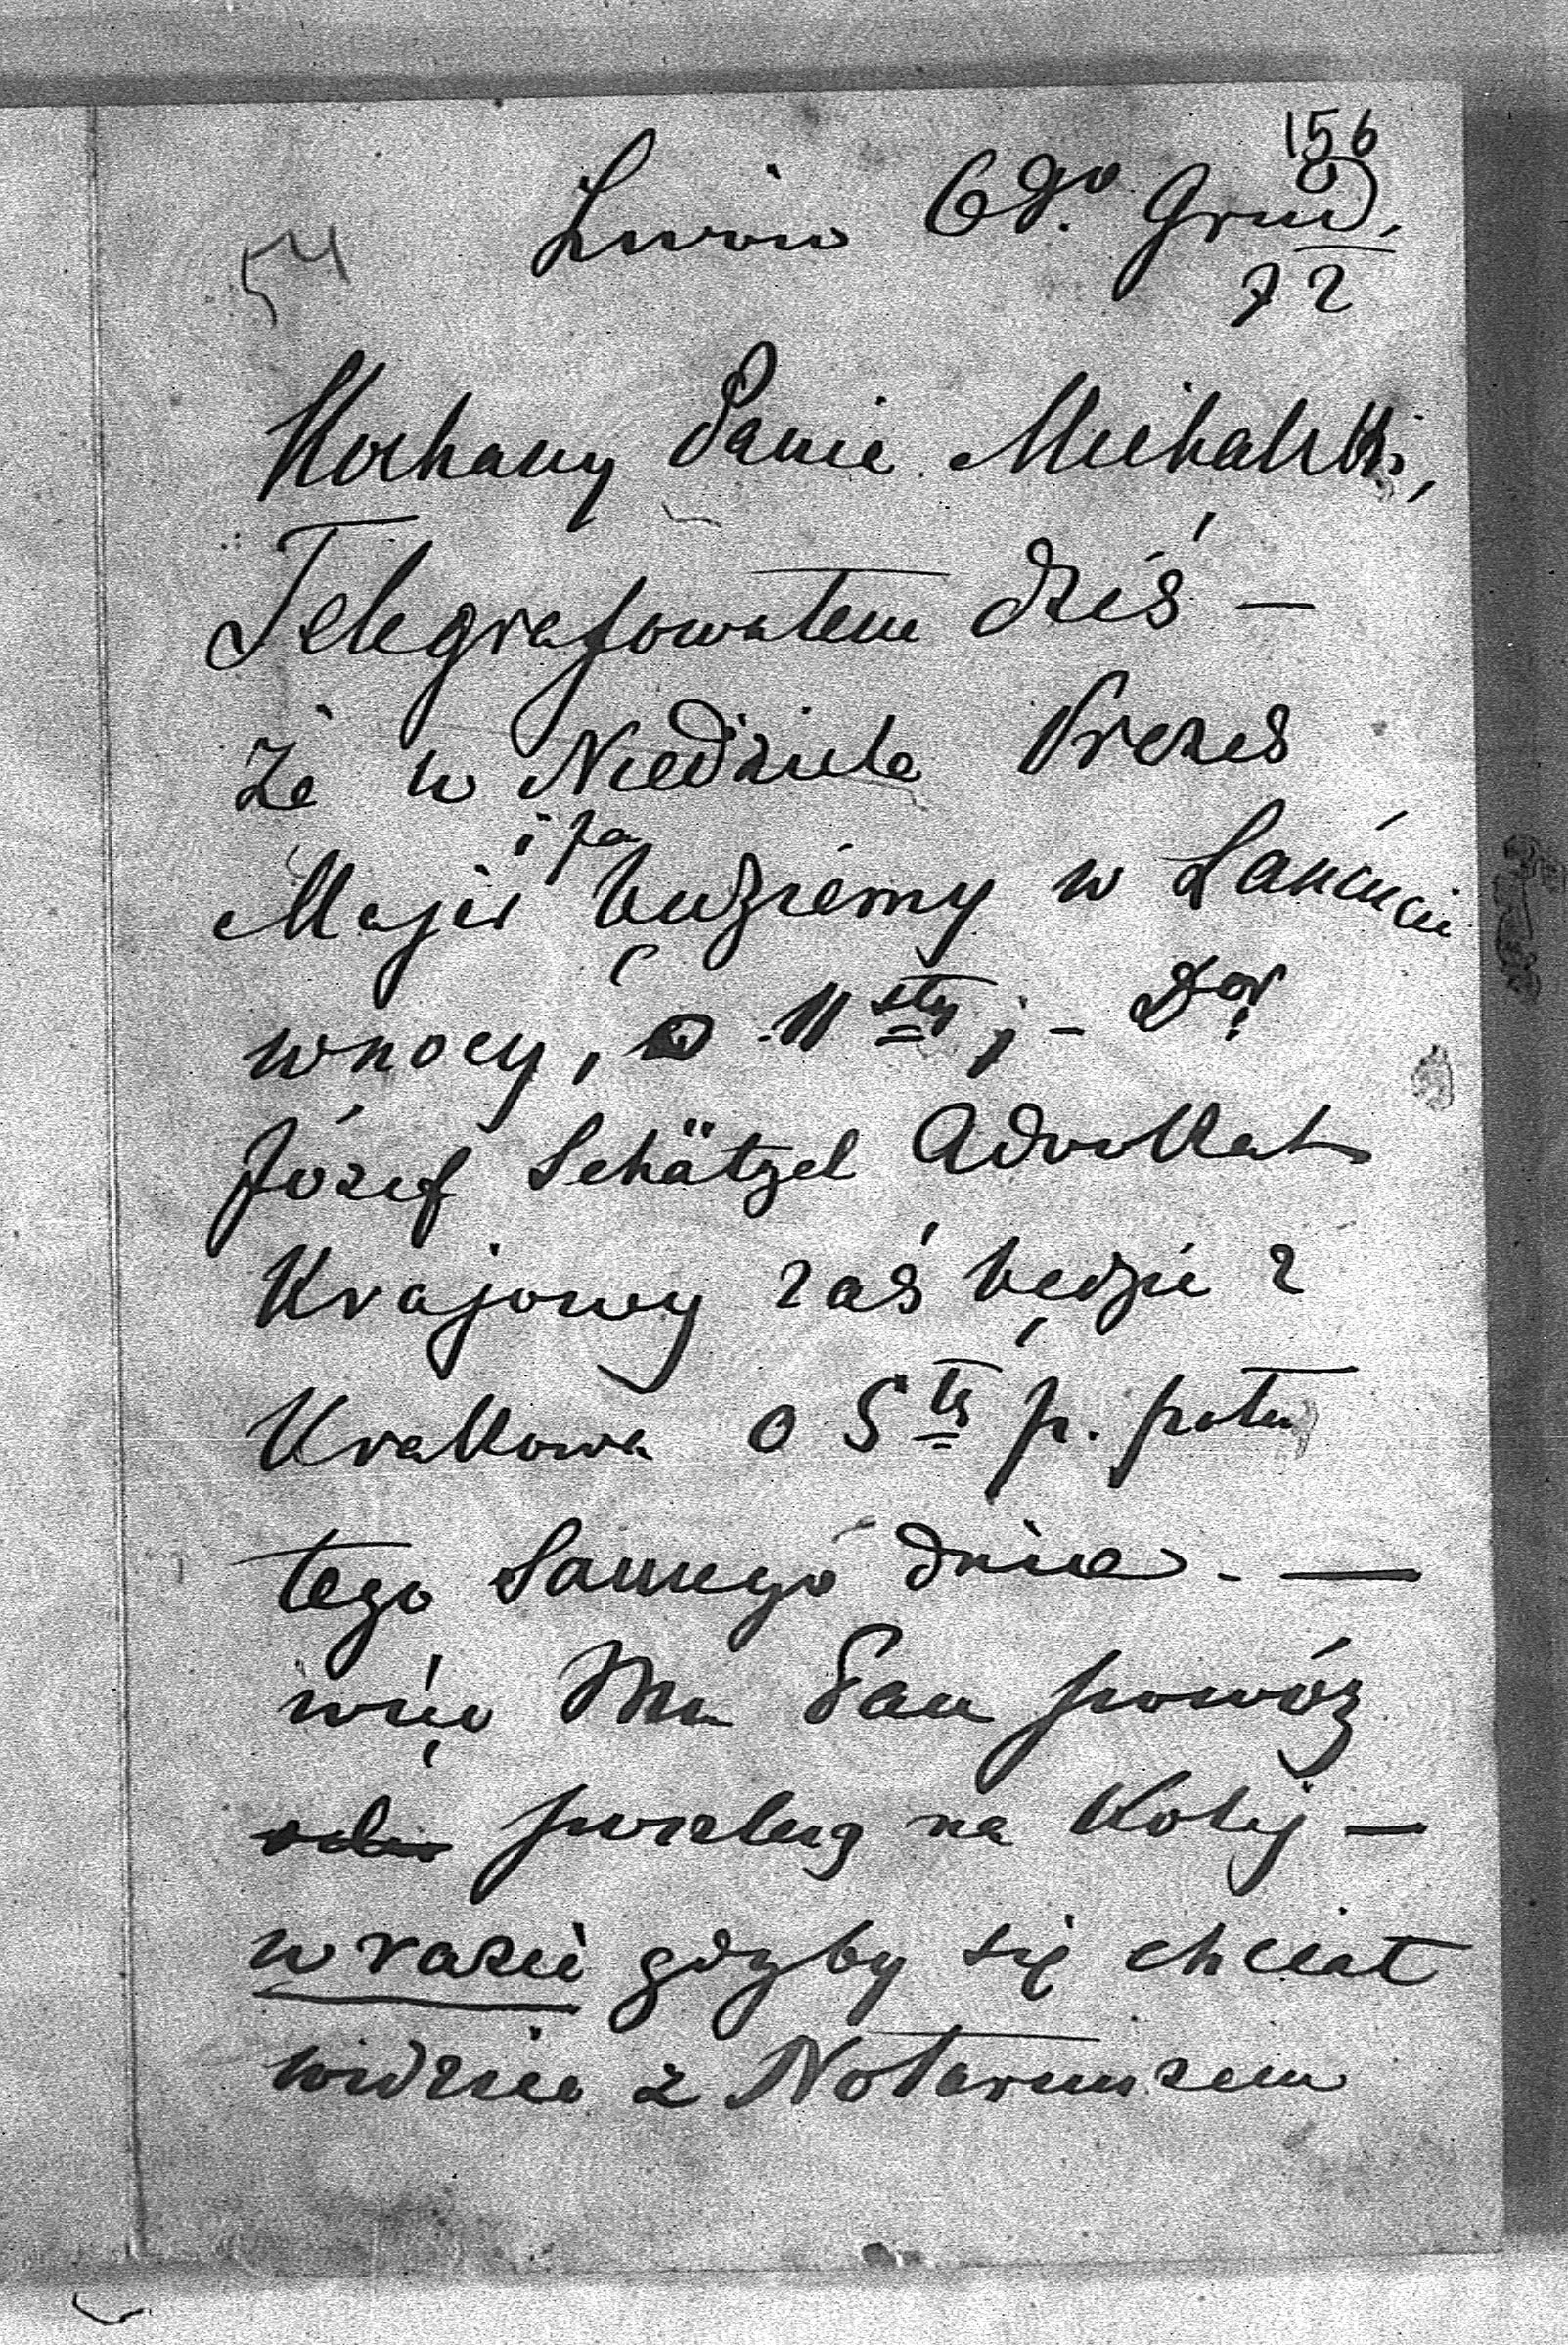 156
Lwów 6go Grud.
72
54
Kochany Panie Michalski,
Telegrafowałem dziś —
że w Niedziele Prezes
i ja
Majer będziemy w Łańcucie
w nocy, o 11sty; — Dor
Józef Schätzel Adwokat
Krajowy zaś będzie z
Krakowa o 5tej p. połu
tego Samego dnia. —
więc Pan powóz
na Koléj —
w razie gdyby się chciał
widzieć z Notaryuszem